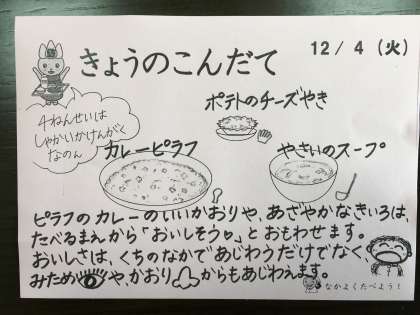 きょうのこんだて
12/4(火)
4ねんせいは
しゃかいかけんがく
なのん
ポテトのチーズやき
カレーピラフ
やさいのスープ
ピラフのカレーのいいかおりや、あざやかなきいろは、
たべるまえから「おいしそう♡」とおもわせます。
おいしさは、くちのなかであじわうだけでなく、
みためや、かおりからもあじわえます。
なかよくたべよう!